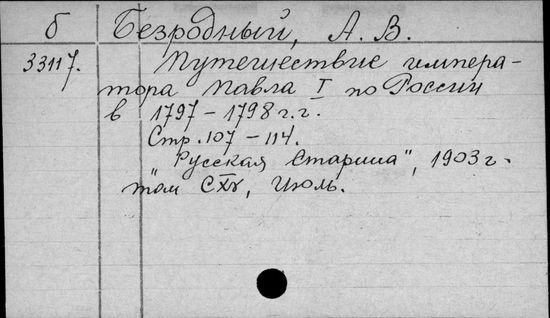 б Безродный, А. В.
33117. Путешествие импера-
тора Павла I по России
в 1797 – 1798 г.г.
Стр. 107 – 114.
"Русская Старина", 1903 г.
том CXV, Июль.